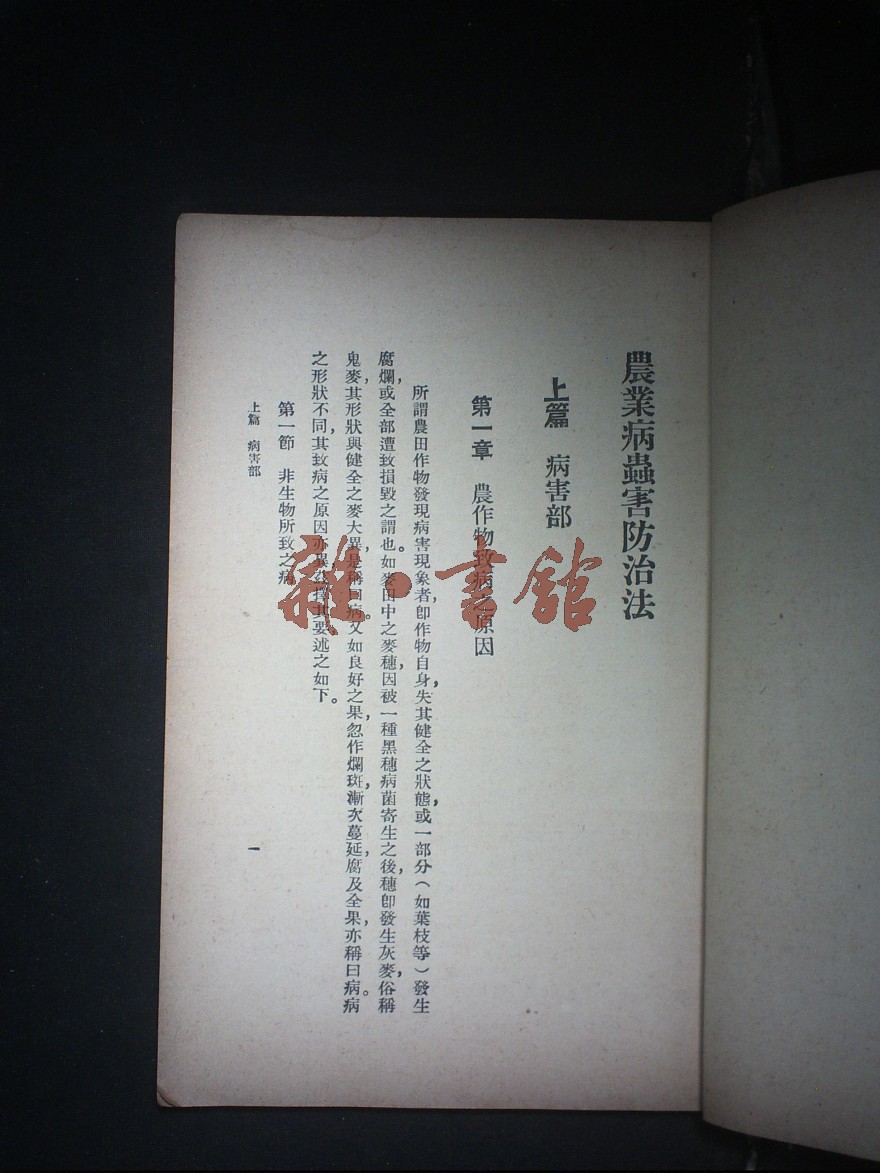 農業病蟲害防治法
上篇　病害部
第一章　農作物致病之原因
所謂農田作物發現病害現象者卽作物自身失其健全之狀態，或一部分（如葉枝等）發生
腐爛，或全部遭致損毀之謂也。如麥田中之麥穗，因被一種黑穗病菌寄生之後，穗卽發生灰麥，俗稱
鬼麥，其形狀與健全之麥大異，是稱曰病。又如良好之果，忽作爛斑，漸次蔓延，腐及全果，亦稱曰病。病
之形狀不同，其致病之原因亦異，茲擇其要述之如下。
第一節　非生物所致之病
上篇　病害部
一
雜·書館